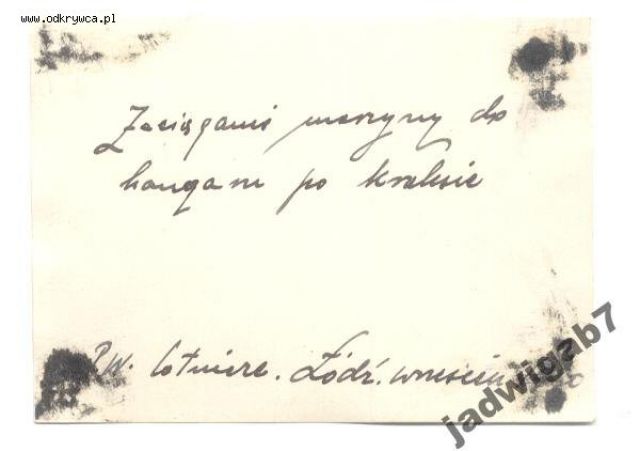 www.odkrywca.pl
Zaciąganie maszyny do
hangaru po kraksie
PW. lotnicze. Łódź. wrzesień
jadwigab7